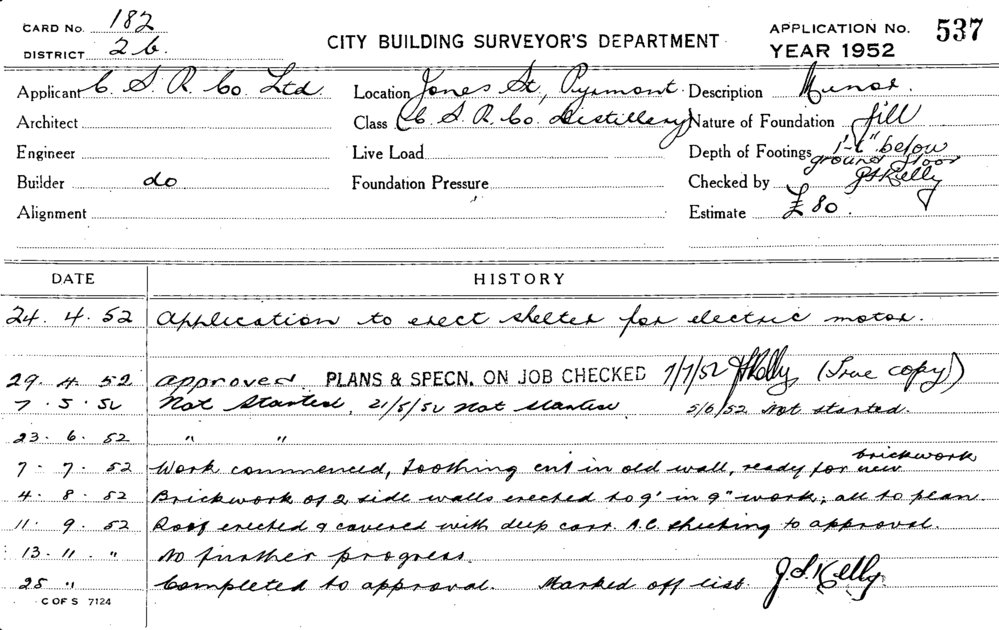 CARD No. 182
DISTRICT 2b.
CITY BUILDING SURVEYOR'S DEPARTMENT
APPLICATION No. 537
YEAR 1952
Applicant C. S. R. Co. Ltd.
Location Jones St, Pyrmont.
Description Minor.
Architect
Class C. S. R. Co. Distillery
Nature of Foundation fill
Engineer
Live Load
Depth of Footings 1'-6" below ground floor
Builder do
Foundation Pressure
Checked by Kelly
Alignment
Estimate £80.
DATE HISTORY
24. 4. 52 Application to erect shelter for electric motor.
29. 4. 52 approved PLANS & SPECN. ON JOB CHECKED 7/7/52 Kelly (True copy)
7. 5. 52 Not Started, 21/5/52 not started 5/6/52 Not started.
23. 6. 52 " "
7. 7. 52 Work commenced, toothing cut in old wall, ready for new brickwork
4. 8. 52 Brickwork of 2 side walls erected to 9' in 9" work, all to plan
11. 9. 52 Roof erected & covered with deep corr. A.C. sheeting to approval.
13. 11. " No further progress.
25 " Completed to approval. Marked off list. Kelly
C OF S 7124